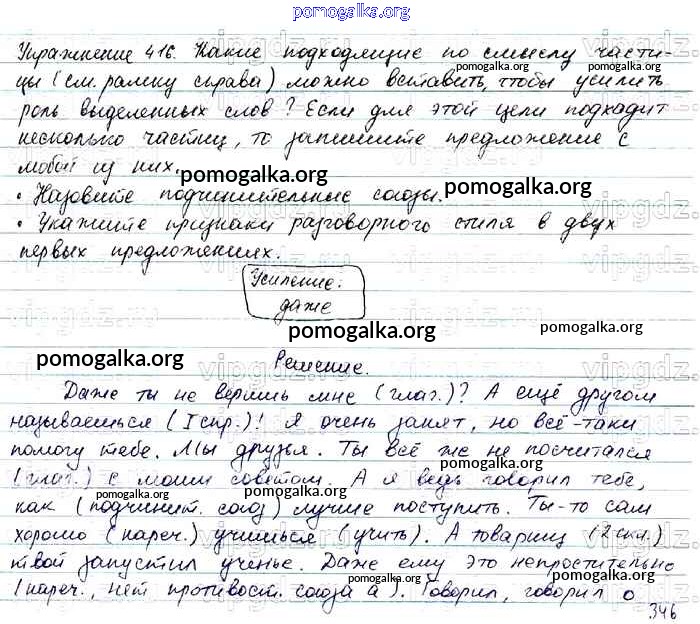 pomogalka.org
Упражнение 416. Какие подходящие по смыслу части-
цы (см. рамку справа) можно вставить, чтобы усилить
pomogalka.org pomogalka.org
роль выделенных слов? Если для этой цели подходит
несколько частиц, то запишите предложение с
любой из них.
pomogalka.org pomogalka.org
• Назовите подчинительные союзы.
vipgdz.ru
• Укажите признаки разговорного стиля в двух
первых предложениях.
Усиление:
даже
pomogalka.org pomogalka.org
pomogalka.org
Решение.
Даже ты не веришь мне (глаг.)? А ещё другом
называешься (I спр.)! Я очень занят, но всё-таки
pomogalka.org
помогу тебе. Мы друзья. Ты всё же не посчитался
(глаг.) с моим советом. А я ведь говорил тебе,
pomogalka.org pomogalka.org
как (подчинит. союз) лучше поступить. Ты-то сам
хорошо (нареч.) учишься (учить). А товарищ (2 скл.)
pomogalka.org
твой запустил ученье. Даже ему это непростительно
pomogalka.org
(нареч., нет противост. союза а). Говорил, говорил о
346